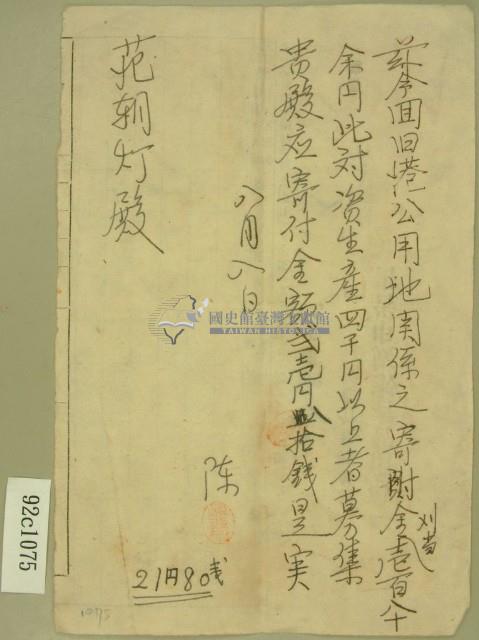 茲今回旧港公用地関係之寄附金壱百八十
刈当
余円此対資生産四千円以上者募集
貴殿应寄付金額弍壱円八拾銭是実
八月八日
陈
范朝灯殿
21円80戋
國史館臺灣文獻館
TAIWAN HISTORICA
92c1075
1075